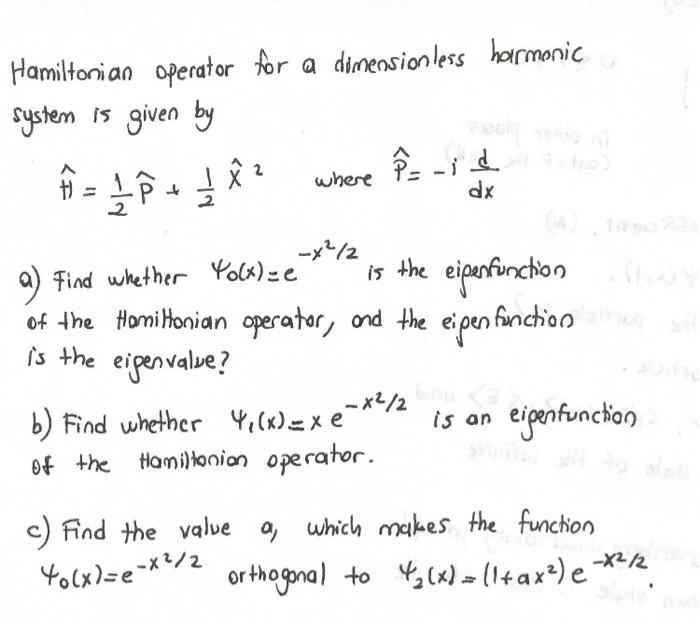 Hamiltonian operator for a dimensionless harmonic
system is given by
Ĥ = 1/2 P̂ + 1/2 X̂ ² where P̂ = -i d/dx
a) Find whether Ψ₀(x)=e^(-x²/2) is the eigenfunction
of the Hamiltonian operator, and the eigenfunction
is the eigenvalue?
b) Find whether Ψ₁(x)=x e^(-x²/2) is an eigenfunction
of the Hamiltonian operator.
c) Find the value a, which makes the function
Ψ₀(x)=e^(-x²/2) orthogonal to Ψ₂(x)=(1+ax²)e^(-x²/2).